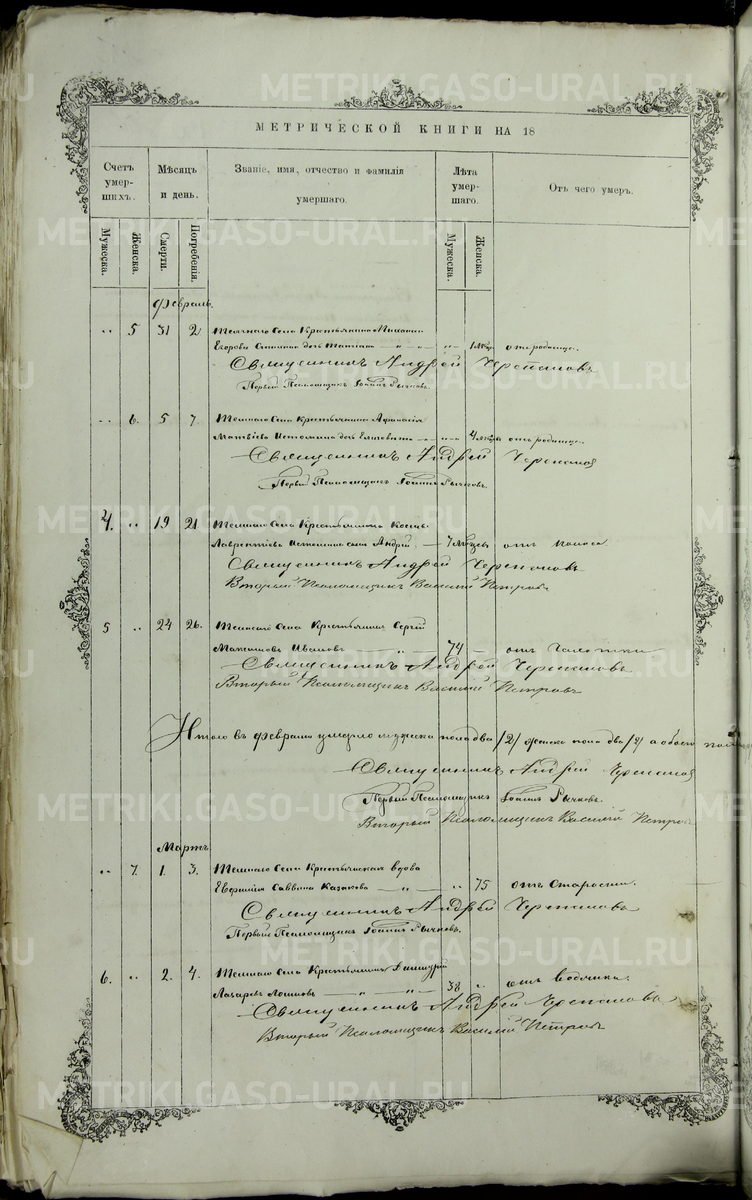 МЕТРИЧЕСКОЙ КНИГИ НА 18
Счетъ умер- шихъ.
Мѣсяцъ и день.
Званіе, имя, отчество и фамилія умершаго.
Лѣта умер- шаго.
Отъ чего умеръ.
Мужеска. Женска. Смерти. Погребенія. Мужеска. Женска.
Февраль.
„ 5 31 2 Села Крестьянина
Егорова дочь 1 мѣс. отъ родимца.
Священникъ Андрей Черепановъ
Первый Псаломщикъ Іоаннъ Рычковъ.
„ 6. 5 7. Села Крестьянина Афанасія
Матвѣева Истомина дочь Елизавета 4 мѣсяца отъ родимца.
Священникъ Андрей Черепановъ
Первый Псаломщикъ Іоаннъ Рычковъ.
4. „ 19 21. Села Крестьянина Космы
Лаврентіева Истомина сынъ Андрей 7 мѣсяцъ отъ поноса
Священникъ Андрей Черепановъ
Вторый Псаломщикъ Василій Петровъ
5 „ 24 26. Села Крестьянинъ Сергій
Максимовъ Ивановъ 74 отъ чахотки
Священникъ Андрей Черепановъ
Вторый Псаломщикъ Василій Петровъ
Итого въ февралѣ умерло мужеска пола два /2/ женска пола два /2/ а обоего
Священникъ Андрей Черепановъ
Первый Псаломщикъ Іоаннъ Рычковъ.
Вторый Псаломщикъ Василій Петровъ
Мартъ.
„ 7. 1. 3. Села Крестьянская вдова
Евфимія Саввина Казакова „ 75 отъ старости.
Священникъ Андрей Черепановъ
Первый Псаломщикъ Іоаннъ Рычковъ.
6. „ 2. 4. Села Крестьянинъ Димитрій
Лазаревъ 38 „ отъ водянки.
Священникъ Андрей Черепановъ
Вторый Псаломщикъ Василій Петровъ
METRIKI.GASO-URAL.RU